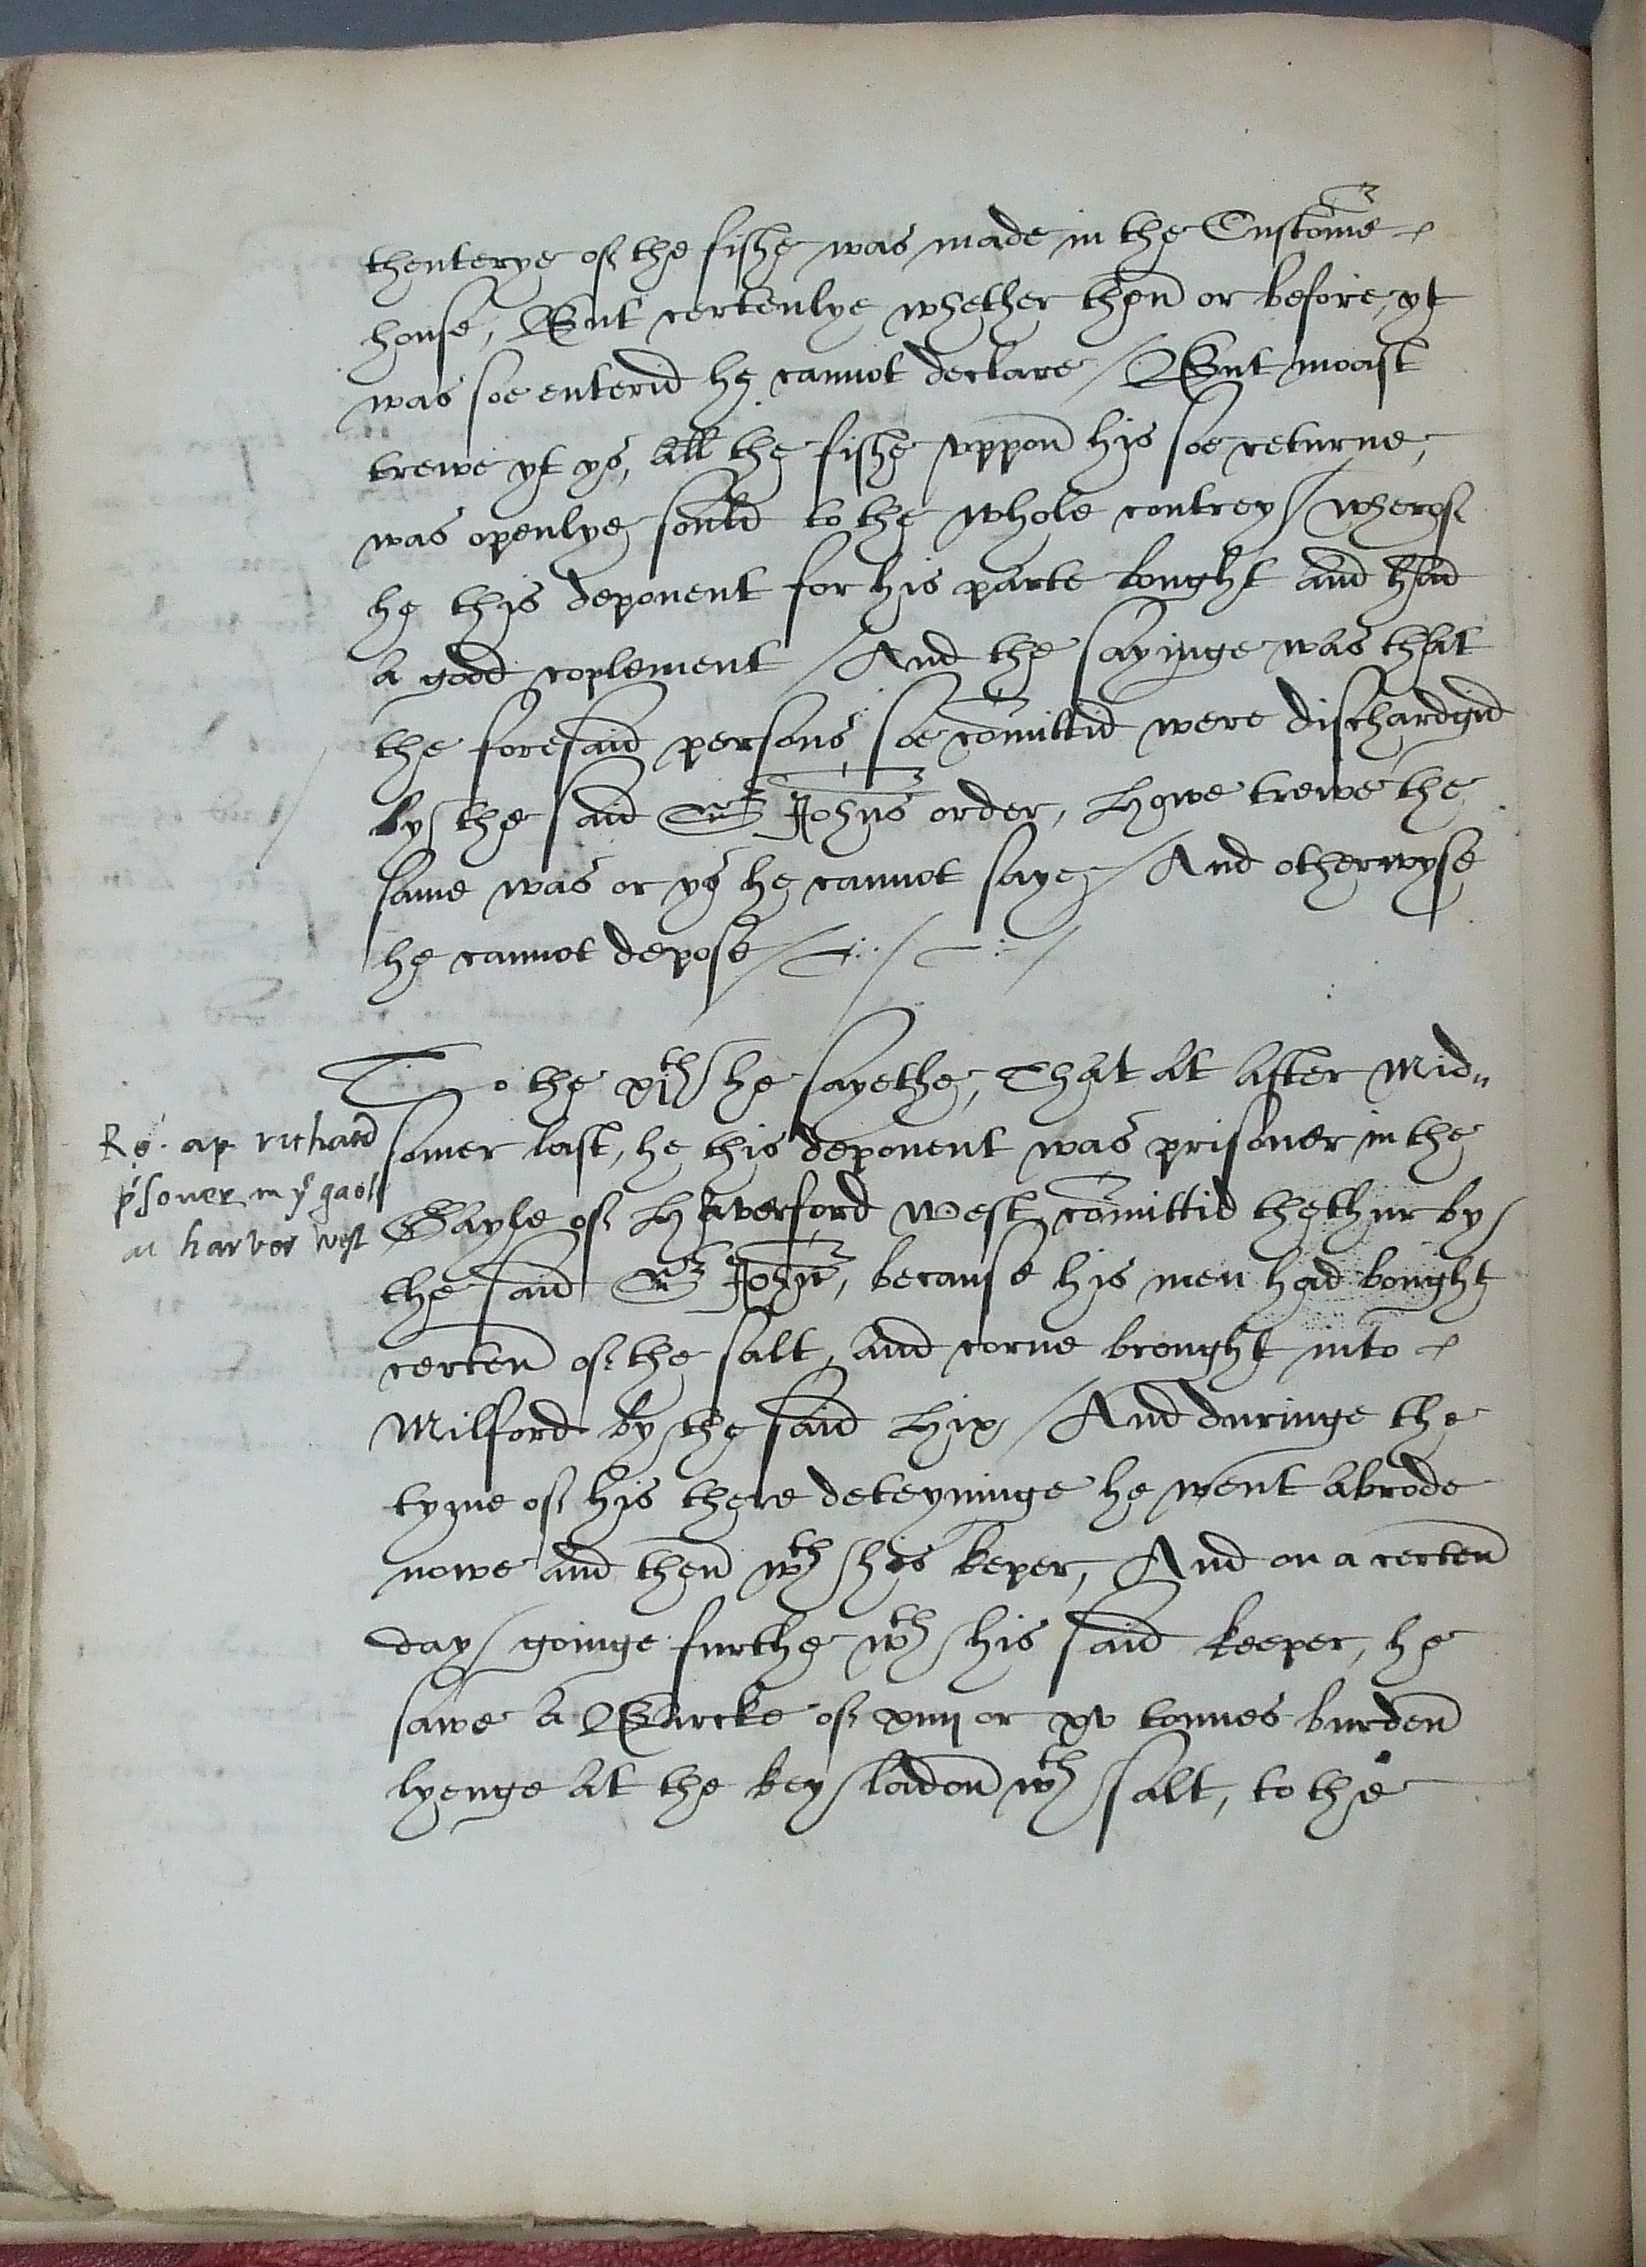 thenterye of the fishe was made in the Custome
house, But certenlye whether then or before, yt
was soe enterid he cannot declare / But moast
trewe yt ys, all the fishe vppon his soe returne,
was openlye sould to the whole contrey / wherof
he this deponent for his parte bought and had
a good coplement / And the sayinge was that
the foresaid persons soe comittid were dischardgid
by the said Sr Johns order, Howe trewe the
same was or ys he cannot saye / And otherwyse
he cannot depose /
To the xjth he sayethe, That at after Mid„
somer last, he this deponent was prisoner in the
Gayle of Haverford west comittid thethur by
the said Sr John, because his men had bought
certen of the salt, and corne brought into
Milford by the said Hix / And duringe the
tyme of his there deteyninge he went abrode
nowe and then wth his keper, And on a certen
day goinge furthe wth his said keeper, he
sawe a Barcke of xiiij or xv tonnes burden
lyenge at the key ladon wth salt, to the
Re. ap richard
psoner in ye gaole
at harver west